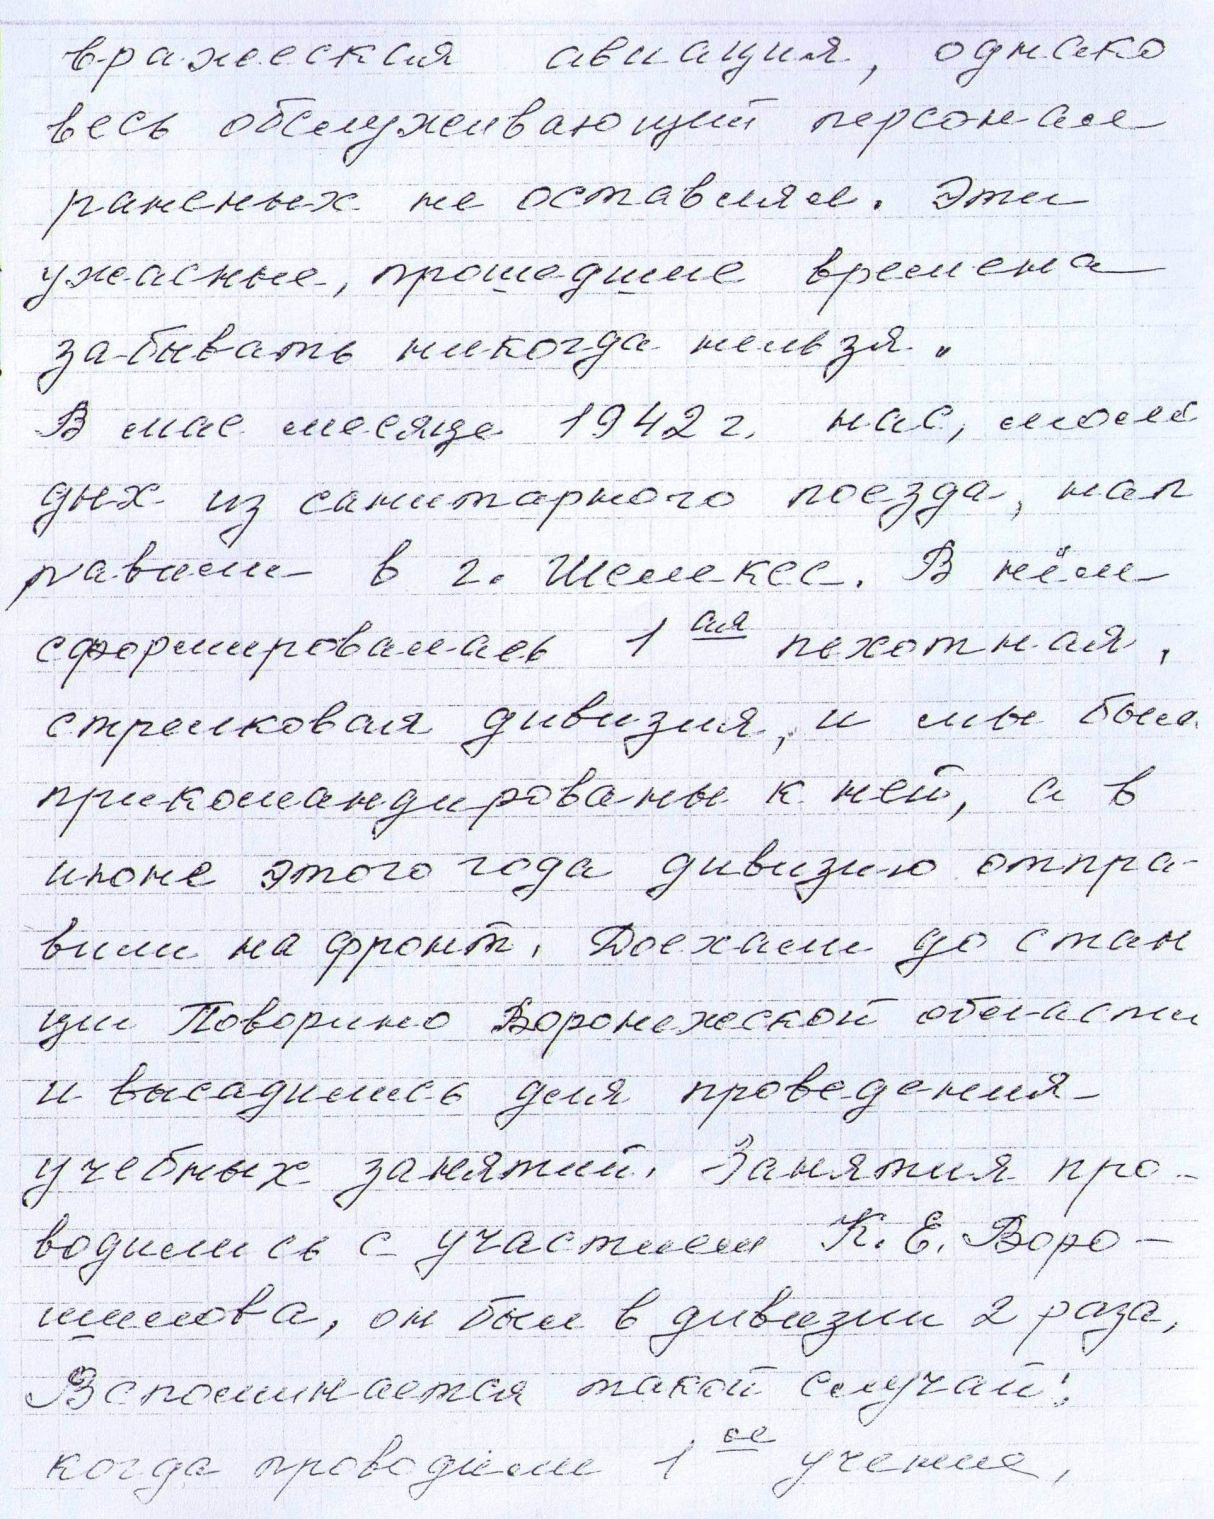 вражеская авиация, однако
весь обслуживающий персонал
раненых не оставлял. Эти
ужасные, прошедшие времена
забывать никогда нельзя.
В мае месяце 1942 г. нас, моло
дых из санитарного поезда, нап
равили в г. Мелекес. В нём
сформировалась 1 ая пехотная,
стрелковая дивизия, и мы были
прикомандированы к ней, а в
июне этого года дивизию отпра-
вили на фронт. Доехали до стан
ции Поворино Воронежской области
и высадились для проведения
учебных занятий. Занятия про-
водились с участием К. Е. Воро-
шилова, он был в дивизии 2 раза,
Вспоминается такой случай:
когда проводили 1 ое учение,